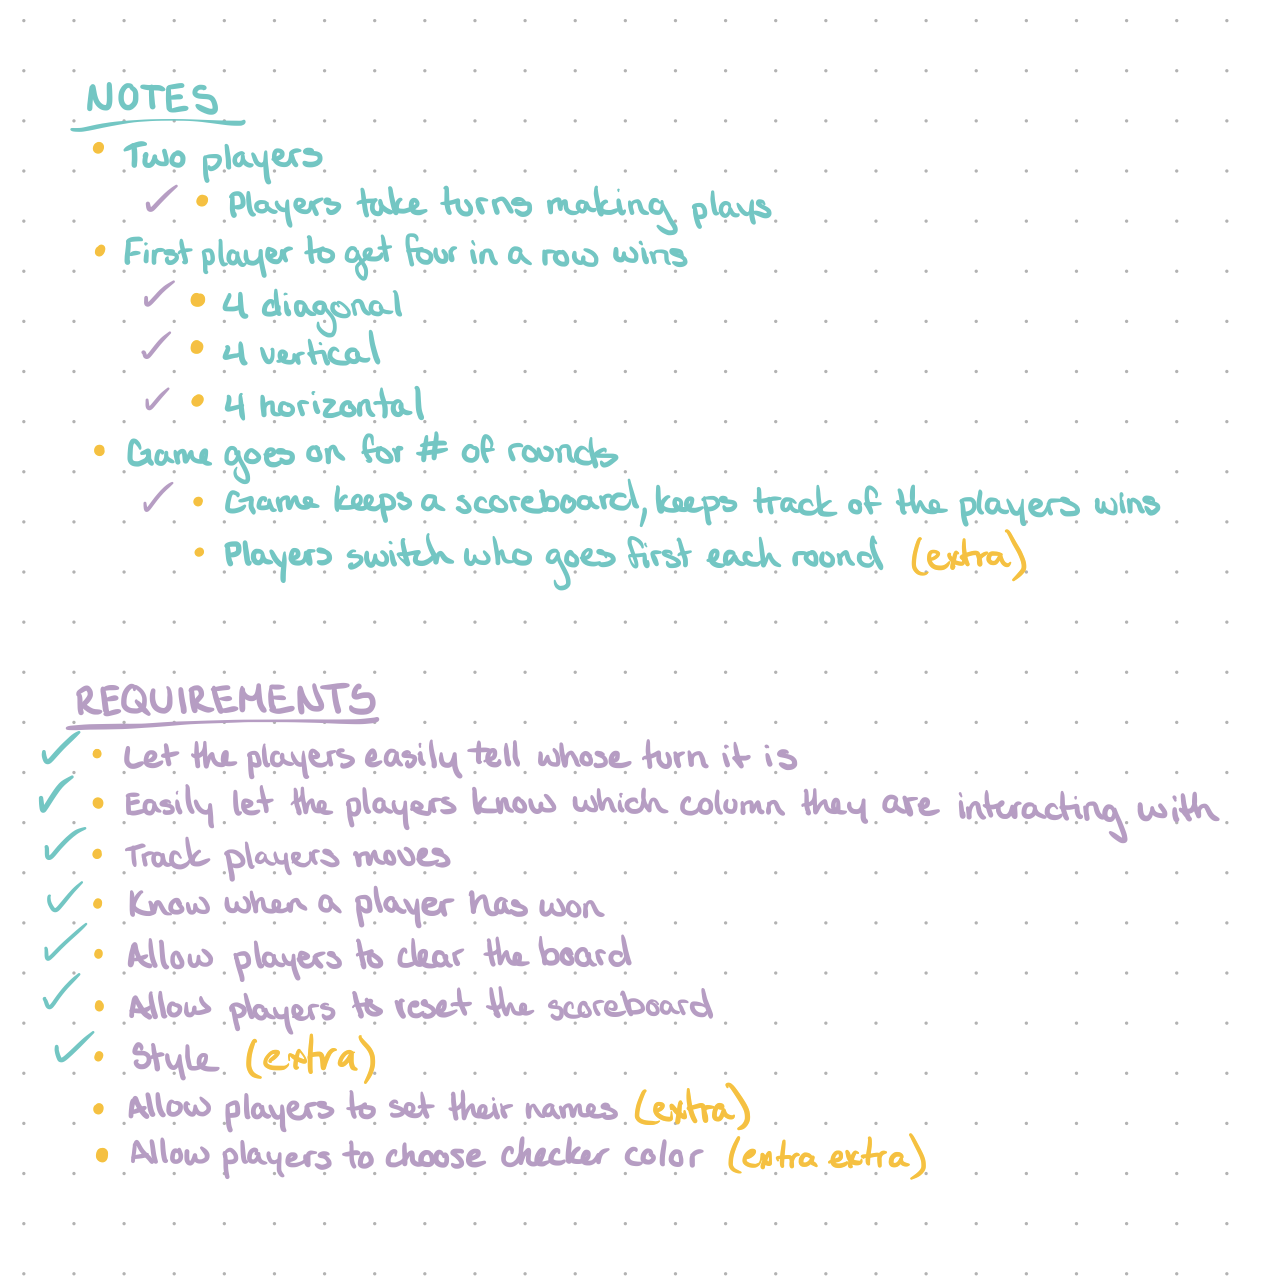 NOTES
Two players
Players take turns making plays
First player to get four in a row wins
4 diagonal
4 vertical
4 horizontal
Game goes on for # of rounds
Game keeps a scoreboard, keeps track of the players wins
Players switch who goes first each round (extra)
REQUIREMENTS
Let the players easily tell whose turn it is
Easily let the players know which column they are interacting with
Track players moves
Know when a player has won
Allow players to clear the board
Allow players to reset the scoreboard
Style (extra)
Allow players to set their names (extra)
Allow players to choose checker color (extra extra)